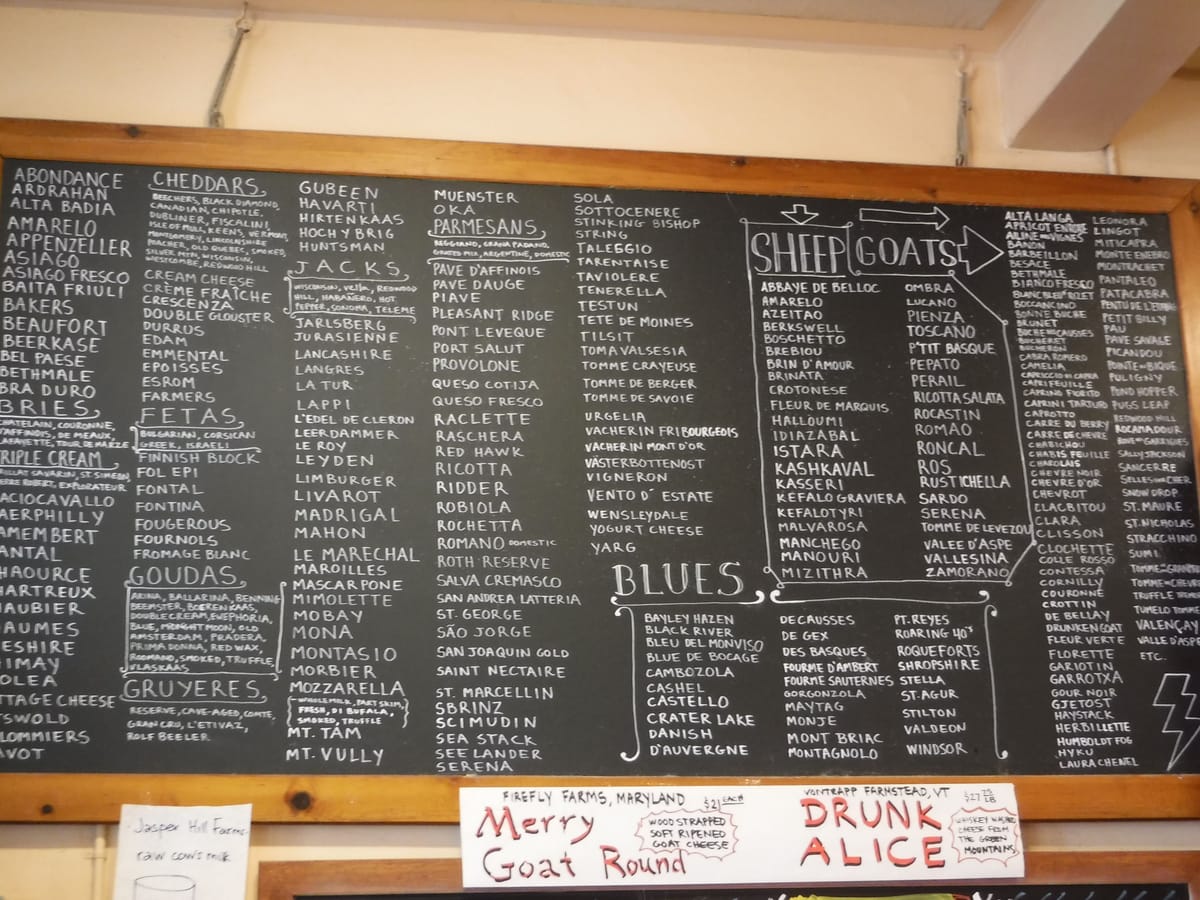 ABONDANCE
ARDRAHAN
ALTA BADIA
AMARELO
APPENZELLER
ASIAGO
ASIAGO FRESCO
BAITA FRIULI
BAKERS
BEAUFORT
BEERKASE
BEL PAESE
BETHMALE
BRA DURO
BRIES
CHATELAIN, COURONNE,
D'AFFINOIS, DE MEAUX,
LAFAYETTE, TOUR DE MARZE
TRIPLE CREAM
BRILLAT SAVARIN, ST. SIMEON,
PIERRE ROBERT, EXPLORATEUR
ACIOCAVALLO
AERPHILLY
AMEMBERT
ANTAL
HAOURCE
HARTREUX
AUBIER
AUMES
ESHIRE
IMAY
OLEA
TTAGE CHEESE
TSWOLD
LOMMIERS
AVOT
CHEDDARS
BEECHERS, BLACK DIAMOND,
CANADIAN, CHIPOTLE,
DUBLINER, FISCALINI
ISLE OF MULL, KEENS, VERMONT,
MONTGOMERY, LINCOLNSHIRE
POACHER, OLD QUEBEC, SMOKED,
SILVER MTN, WISCONSIN,
WESTCOMBE, REDWOOD HILL
CREAM CHEESE
CRÈME FRAÎCHE
CRESCENZA
DOUBLE GLOUSTER
DURRUS
EDAM
EMMENTAL
EPOISSES
ESROM
FARMERS
FETAS
BULGARIAN, CORSICAN
GREEK, ISRAELI
FINNISH BLOCK
FOL EPI
FONTAL
FONTINA
FOUGEROUS
FOURNOLS
FROMAGE BLANC
GOUDAS
ARINA, BALLARINA, BENNING
BEEMSTER, BOERENKAAS,
DOUBLE CREAM, EWEPHORIA,
BLUE, MIDNIGHT MOON, OLD
AMSTERDAM, PRADERA,
PRIMA DONNA, RED WAX,
ROOMANO, SMOKED, TRUFFLE,
VLASKAAS
GRUYERES
RESERVE, CAVE-AGED, COMTE,
GRAN CRU, L'ETIVAZ,
ROLF BEELER
GUBEEN
HAVARTI
HIRTENKAAS
HOCH YBRIG
HUNTSMAN
JACKS
WISCONSIN, VELLA, REDWOOD
HILL, HABAÑERO, HOT
PEPPER, SONOMA, TELEME
JARLSBERG
JURASIENNE
LANCASHIRE
LANGRES
LA TUR
LAPPI
L'EDEL DE CLERON
LEERDAMMER
LE ROY
LEYDEN
LIMBURGER
LIVAROT
MADRIGAL
MAHON
LE MARECHAL
MAROILLES
MASCARPONE
MIMOLETTE
MOBAY
MONA
MONTASIO
MORBIER
MOZZARELLA
WHOLE MILK, PART SKIM,
FRESH, DI BUFALA,
SMOKED, TRUFFLE
MT. TAM
MT. VULLY
MUENSTER
OKA
PARMESANS
REGGIANO, GRANA PADANO,
GOATS MILK, ARGENTINE, DOMESTIC
PAVE D'AFFINOIS
PAVE DAUGE
PIAVE
PLEASANT RIDGE
PONT LEVEQUE
PORT SALUT
PROVOLONE
QUESO COTIJA
QUESO FRESCO
RACLETTE
RASCHERA
RED HAWK
RICOTTA
RIDDER
ROBIOLA
ROCHETTA
ROMANO DOMESTIC
ROTH RESERVE
SALVA CREMASCO
SAN ANDREA LATTERIA
ST. GEORGE
SÃO JORGE
SAN JOAQUIN GOLD
SAINT NECTAIRE
ST. MARCELLIN
SBRINZ
SCIMUDIN
SEA STACK
SEE LANDER
SERENA
SOLA
SOTTOCENERE
STINKING BISHOP
STRING
TALEGGIO
TARENTAISE
TAVIOLERE
TENERELLA
TESTUN
TETE DE MOINES
TILSIT
TOMA VALSESIA
TOMME CRAYEUSE
TOMME DE BERGER
TOMME DE SAVOIE
URGELIA
VACHERIN FRIBOURGEOIS
VACHERIN MONT D'OR
VÄSTERBOTTENOST
VIGNERON
VENTO D' ESTATE
WENSLEYDALE
YOGURT CHEESE
YARG
SHEEP
ABBAYE DE BELLOC
AMARELO
AZEITAO
BERKSWELL
BOSCHETTO
BREBIOU
BRIN D'AMOUR
BRINATA
CROTONESE
FLEUR DE MARQUIS
HALLOUMI
IDIAZABAL
ISTARA
KASHKAVAL
KASSERI
KEFALO GRAVIERA
KEFALOTYRI
MALVAROSA
MANCHEGO
MANOURI
MIZITHRA
OMBRA
LUCANO
PIENZA
TOSCANO
P'TIT BASQUE
PEPATO
PERAIL
RICOTTA SALATA
ROCASTIN
ROMAO
RONCAL
ROS
RUSTICHELLA
SARDO
SERENA
TOMME DE LEVEZOU
VALEE D'ASPE
VALLESINA
ZAMORANO
BLUES
BAYLEY HAZEN
BLACK RIVER
BLEU DEL MONVISO
BLUE DE BOCAGE
CAMBOZOLA
CASHEL
CASTELLO
CRATER LAKE
DANISH
D'AUVERGNE
DECAUSSES
DE GEX
DES BASQUES
FOURME D'AMBERT
FOURME SAUTERNES
GORGONZOLA
MAYTAG
MONJE
MONT BRIAC
MONTAGNOLO
PT. REYES
ROARING 40'S
ROQUEFORTS
SHROPSHIRE
STELLA
ST. AGUR
STILTON
VALDEON
WINDSOR
GOATS
ALTA LANGA
APRICOT ENTREE
AU LINE DES VIGNES
BANON
BARBEILLON
BESACE
BETHMALE
BIANCO FRESCO
BOCCANCINO
BONNE BUCHE
BRUNET
BUCHE DE CAUSSES
BUCHERET
BUCHERON
CABRA ROMERO
CAMELIA
CAPRICCIO DI CAPRA
CAPRIFEUILLE
CAPRINO FIORITO
CAPRINI TARTUFO
CAPROTTO
CARRE DU BERRY
CARRE DE CHEVRE
CHABICHOU
CHABIS FEUILLE
CHAROLAIS
CHEVRE NOIR
CHEVRE D'OR
CHEVROT
CLACBITOU
CLARA
CLISSON
CLOCHETTE
COLLE ROSSO
CONTESSA
CORNILLY
COURONNE
CROTTIN
DE BELLAY
DRUNKEN GOAT
FLEUR VERTE
FLORETTE
GARIOTIN
GARROTXA
GOUR NOIR
GJETOST
HAYSTACK
HERBILLETTE
HUMBOLDT FOG
HYKU
LAURA CHENEL
LEONORA
LINGOT
MITICAPRA
MONTE ENEBRO
MONTRACHET
PANTALEO
PATACABRA
PETIT BILLY
PAU
PAVE SAVAGE
PICANDOU
POINTE DE BIQUE
PULIGNY
POND HOPPER
PUGS LEAP
REDWOOD HILL
ROCAMADOUR
ROVE DES GARRIGUES
SALLY JACKSON
SANCERRE
SELLES SUR CHER
SNOW DROP
ST. MAURE
ST. NICHOLAS
STRACCHINO
SUMI
TOMME DE CHEV
TRUFFLE
TUMELO TOMA
VALENÇAY
VALLE D'ASPE
ETC.
Jasper Hill Farms
raw cow's milk
FIREFLY FARMS, MARYLAND $21 EACH
Merry
Goat Round
WOOD STRAPPED
SOFT RIPENED
GOAT CHEESE
VONTRAPP FARMSTEAD, VT
DRUNK
ALICE
WHISKEY WASHED
CHEESE FROM
THE GREEN
MOUNTAINS